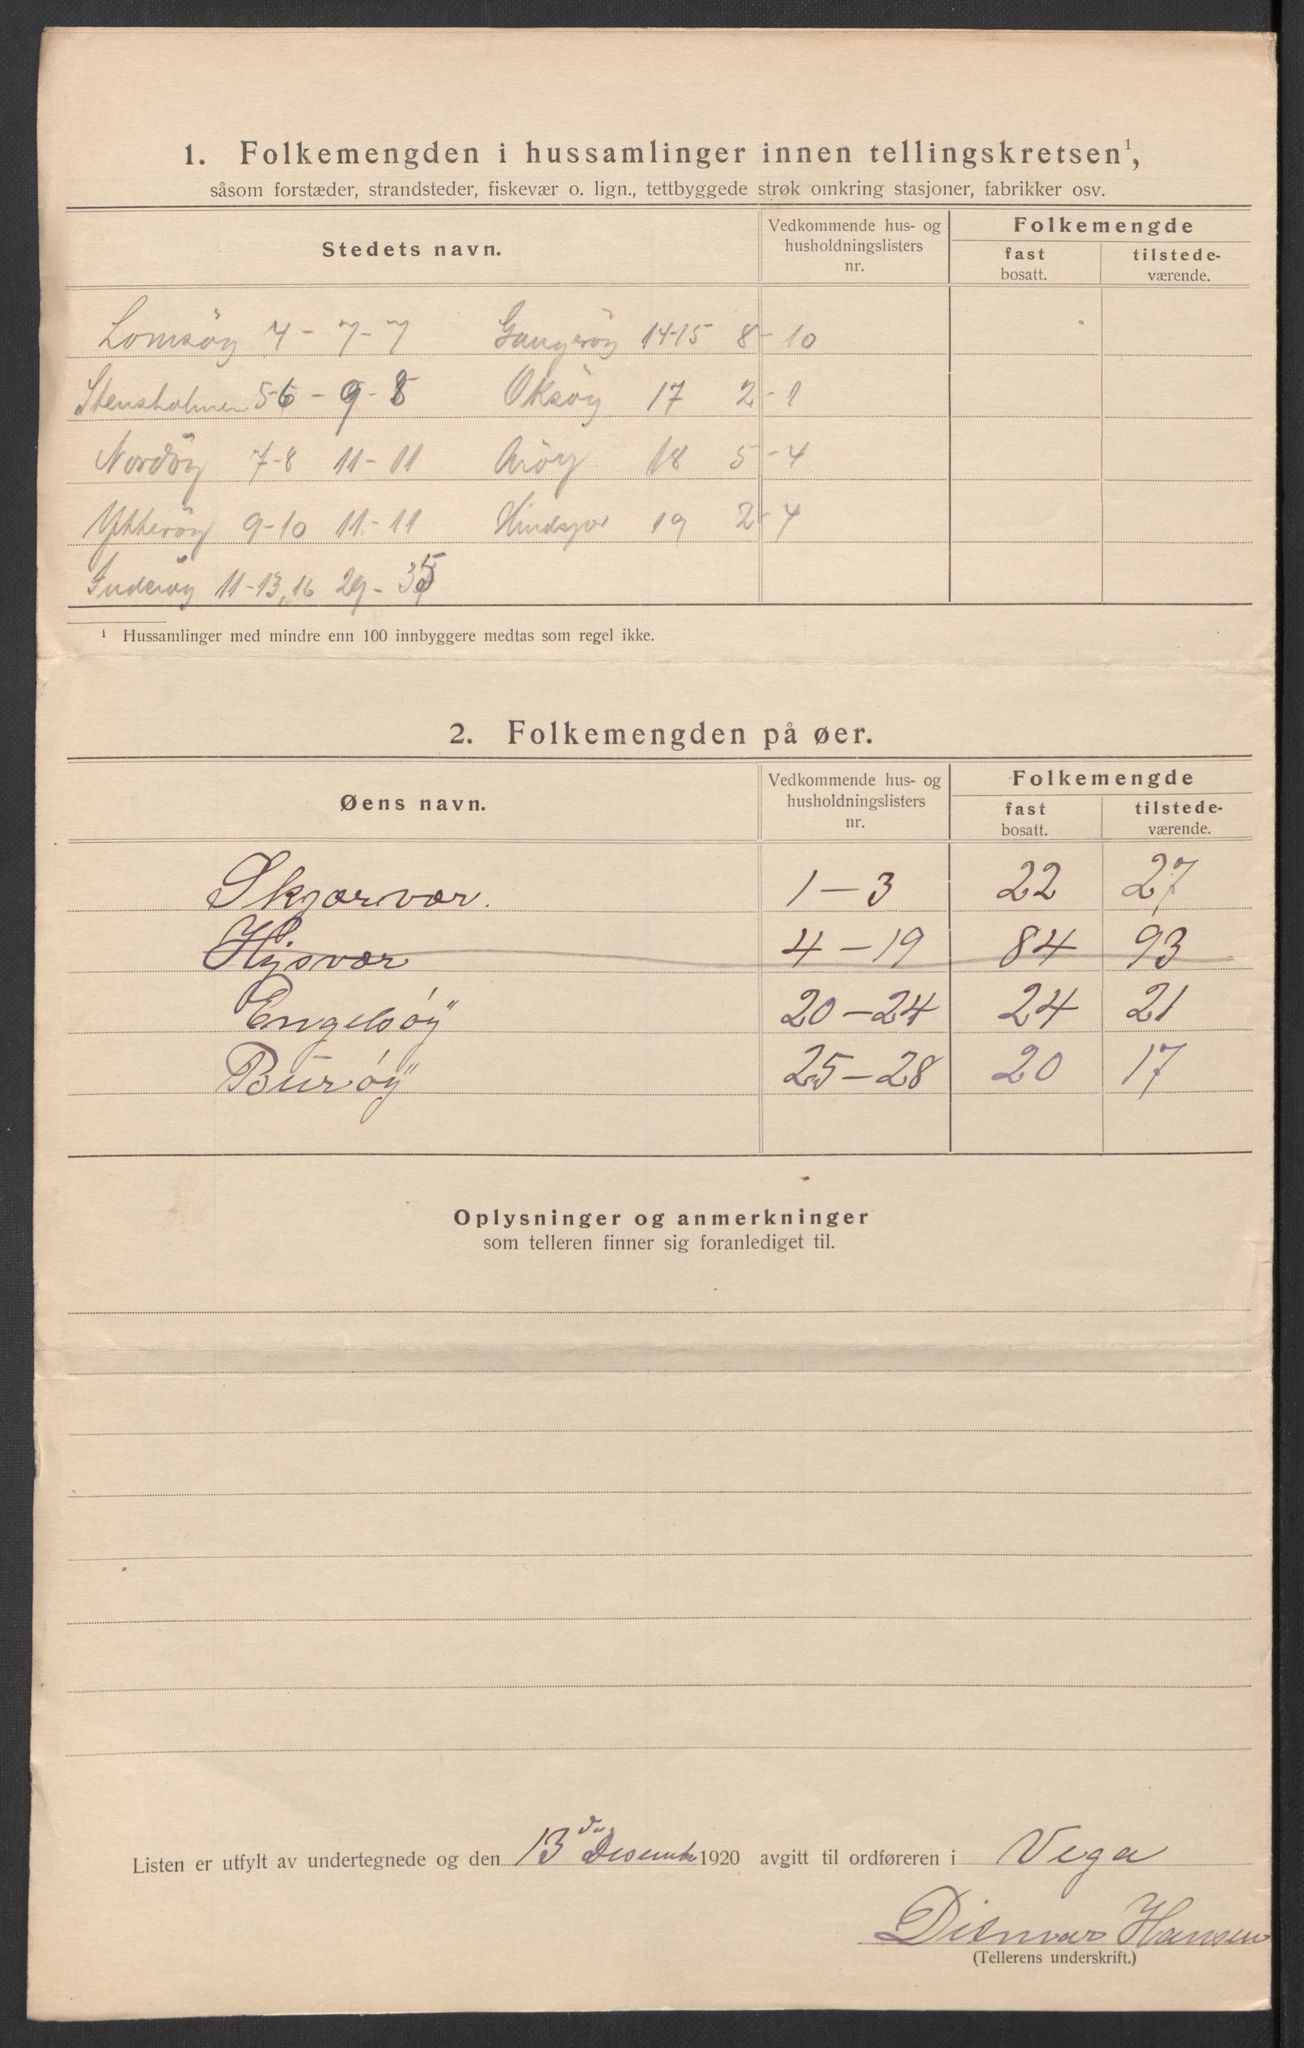 1. Folkemengden i hussamlinger innen tellingskretsen¹,
såsom forstæder, strandsteder, fiskevær o. lign., tettbyggede strøk omkring stasjoner, fabrikker osv.
Stedets navn.
Vedkommende hus- og
husholdningslisters
nr.
Folkemengde
fast
bosatt.
tilstede-
værende.
Lomsöy 4 - 7 - 7 Gangeröy 14-15 8 - 10
Stensholmen 5-6 - 9 - 8 Oksöy 17 2 - 1
Nordöy 7-8 11 - 11 Aröy 18 5 - 4
Ytteröy 9-10 11 - 11 19 2 - 4
Inderöy 11-13, 16 29 - 35
¹ Hussamlinger med mindre enn 100 innbyggere medtas som regel ikke.
2. Folkemengden på øer.
Øens navn.
Vedkommende hus- og
husholdningslisters
nr.
Folkemengde
fast
bosatt.
tilstede-
værende.
Skjærvær. 1 - 3 22 27
Hysvær 4 - 19 84 93
Engelsöy 20 - 24 24 21
Buröy 25 - 28 20 17
Oplysninger og anmerkninger
som telleren finner sig foranlediget til.
Listen er utfylt av undertegnede og den 13 Desembr 1920 avgitt til ordføreren i Vega
Ditmar Hansen
(Tellerens underskrift.)